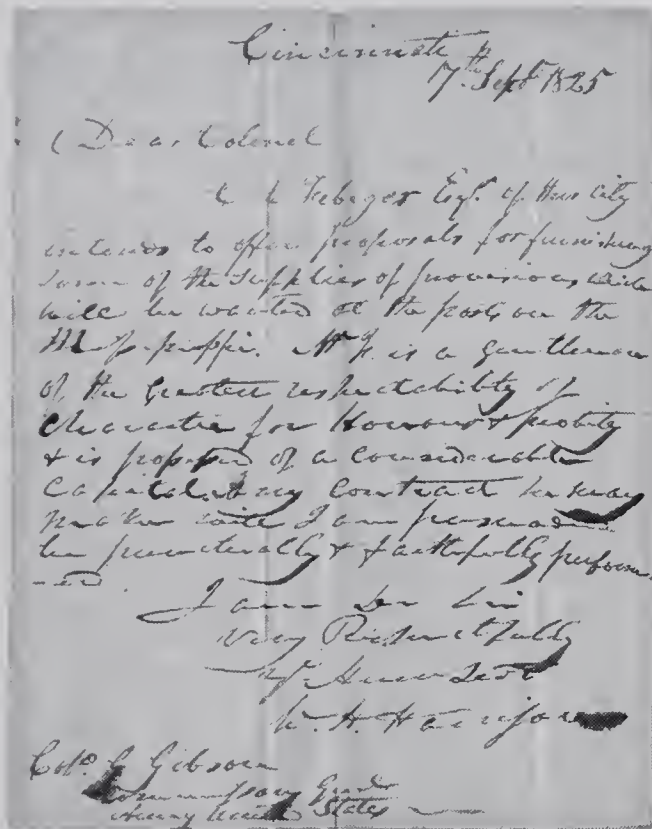 Cincinnati
7th Sept 1825
Dear Colonel
Febiger Esqr. of this city
intends to offer proposals for furnishing
some of the supplies of provisions which
will be wanted at the posts on the
Mississippi. Mr F. is a gentleman
of the greatest respectability of
Character for Honour & probity
& is possessed of a considerable
Capital. Any contract he may
make will I am persuaded
be punctually & faithfully perform
-ed.
I am Dr Sir
Very Respectfully
Yr. Hume Servt
W. H. Harrison
Colo. G Gibson
Commissary Genl
Army United States